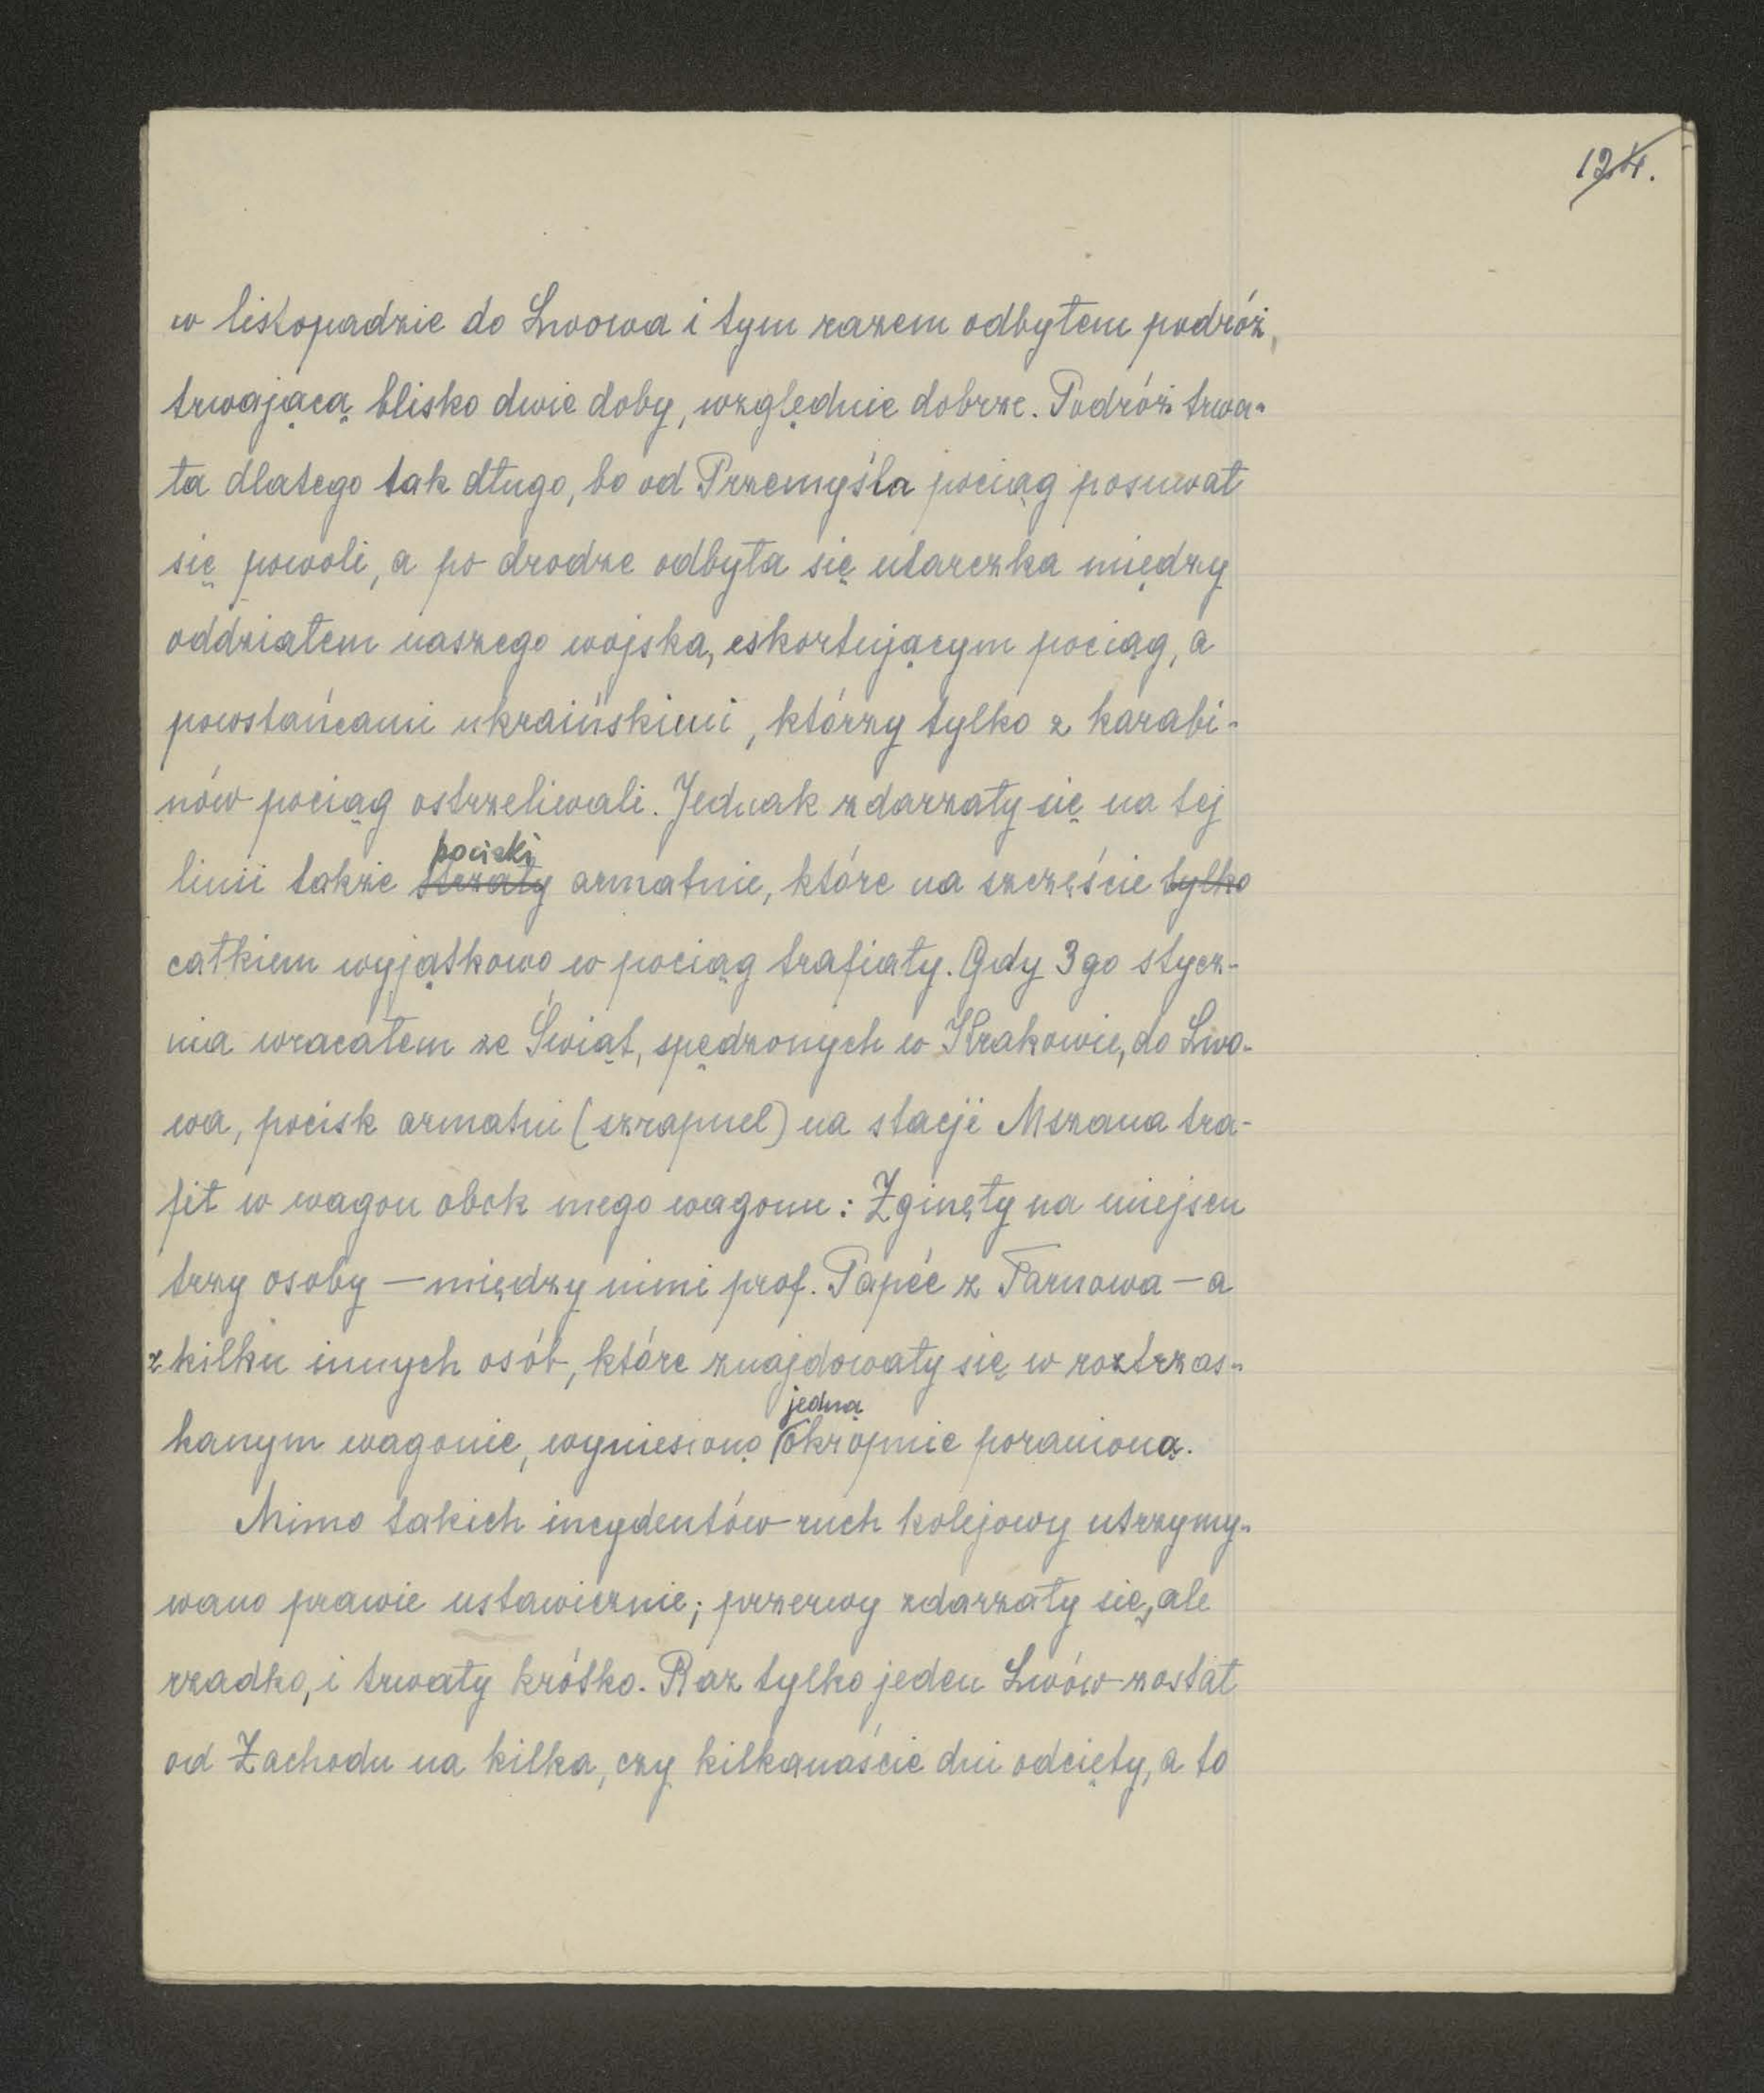 124.
w listopadzie do Lwowa i tym razem odbyłem podróż,
trwającą blisko dwie doby, względnie dobrze. Podróż trwa-
ła dlatego tak długo, bo od Przemyśla pociąg posuwał
się powoli, a po drodze odbyła się utarczka między
oddziałem naszego wojska, eskortującym pociąg, a
powstańcami ukraińskimi, którzy tylko z karabi-
nów pociąg ostrzeliwali. Jednak zdarzały się na tej
pociski
linii także strzały armatnie, które na szczęście tylko
całkiem wyjątkowo w pociąg trafiały. Gdy 3go stycz-
nia wracałem ze Świąt, spędzonych w Krakowie, do Lwo-
wa, pocisk armatni (szrapnel) na stacji Mszana tra-
fił w wagon obok mego wagonu: Zginęły na miejscu
trzy osoby — między nimi prof. Papée z Tarnowa — a
z kilku innych osób, które znajdowały się w roztrzas-
jedną
kanym wagonie, wyniesiono okropnie poranioną.
Mimo takich incydentów ruch kolejowy utrzymy-
wano prawie ustawicznie; przerwy zdarzały się, ale
rzadko, i trwały krótko. Raz tylko jeden Lwów został
od Zachodu na kilka, czy kilkanaście dni odcięty, a to